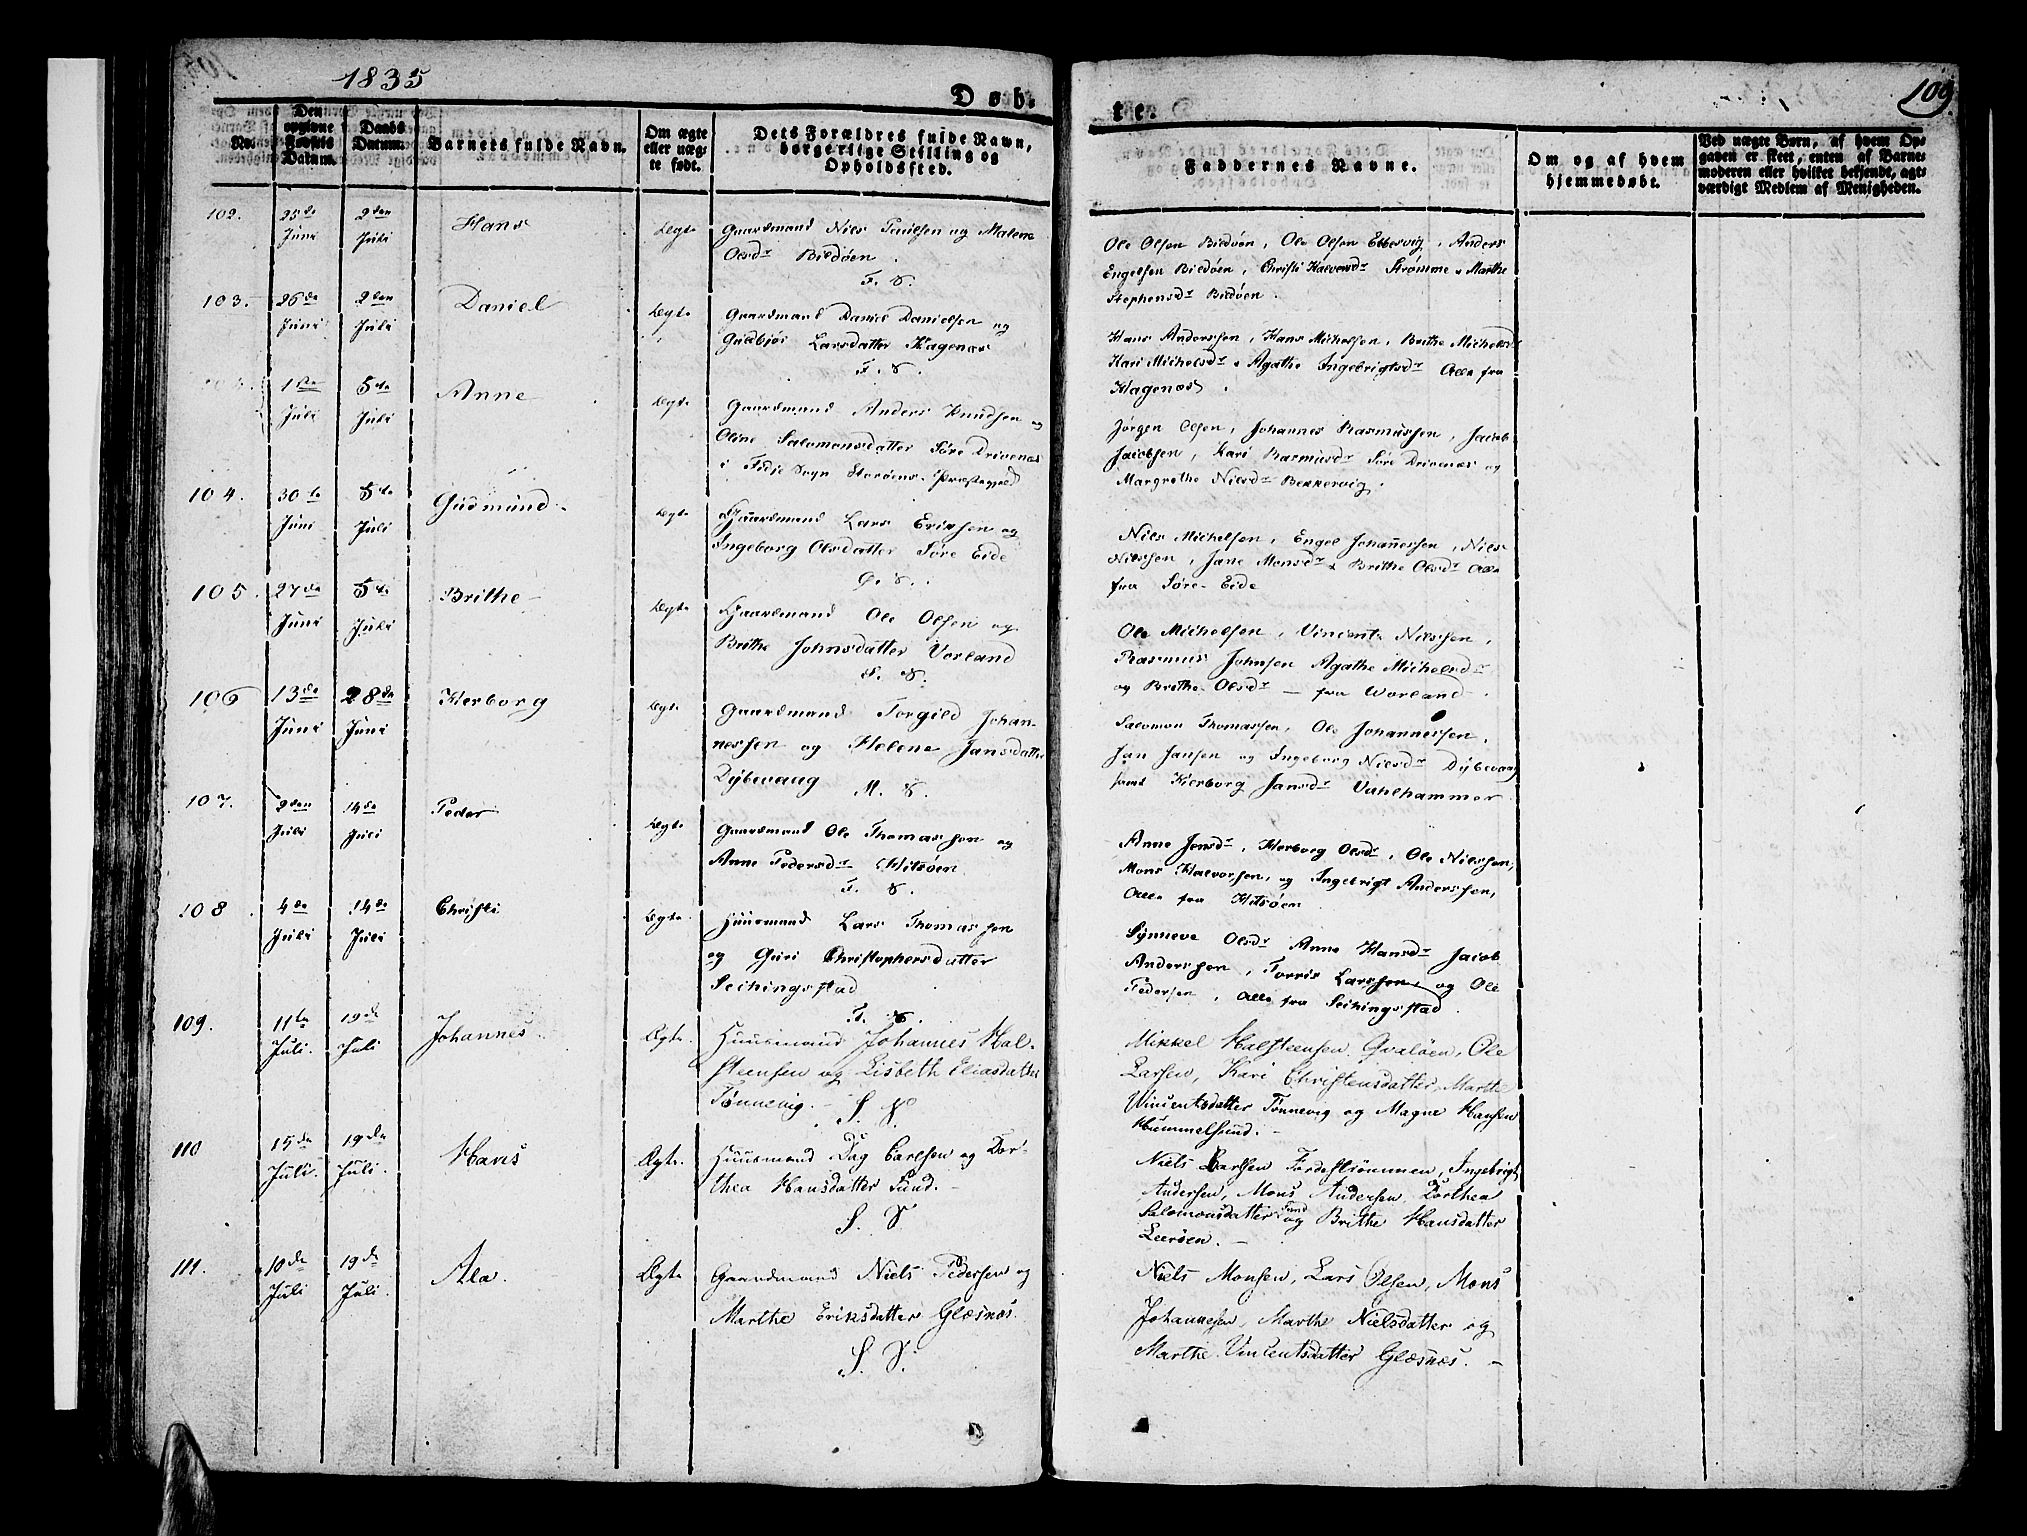 1835
Døb-
te.
109.
No.
Den opgivne Fødsels Datum.
Daabs Datum.
Barnets fulde Navn.
Om ægte eller uægte født.
Dets Forældres fulde Navn, borgerlige Stilling og Opholdssted.
Faddernes Navne.
Om og af hvem hjemmedøbt.
Ved uægte Børn, af hvem Opgaven er skeet, enten af Barnemoderen eller hvilket bekjendt, agtværdigt Medlem af Menigheden.
102. 25de Juni 2den Juli Hans Ægte
Gaardmand Niels Paulsen og Malene
Olsdr Bildøen.
F. S.
Ole Olsen Bildøen, Ole Olsen Ebbesvig, Anders
Engelsen Bildøen, Christi Halversdr Strømme, Marthe
Stephensdr Bildøen.
103. 26de Juni 2den Juli Daniel Ægte
Gaardmand Daniel Danielsen og
Larsdatter Hagenæs
F. S.
Hans Anderssen, Hans Michelsen, Brithe Michelsdr
Kari Michelsdr Agathe Ingebrigtsdr Alle fra
Hagenæs.
1ste Juli 5te Juli Anne Ægte
Gaardmand Anders Knudsen og
Oline Salomonsdatter Søre Drivenæs
i Fidje Sogn Præstegjeld
Jørgen Olsen, Johannes Rasmussen, Jacob
Jacobsen, Kari Rasmusdr Søre Drivenæs og
Margrethe Nielsdr Bekkervig.
104. 30te Juni 5te Juli Gudmund Ægte
Gaardmand Lars Erixsen og
Ingeborg Olsdatter Søre Eide
Niels Michelsen, Engel Johannessen, Niels
Nilssen, Jane Monsdr & Brithe Olsdr Alle
fra Søre Eide
105. 27de Juni 5te Juli Brithe Ægte
Gaardmand Ole Olsen og
Brithe Johnsdatter Vorland
F. S.
Ole Michelsen, Vincents Nilssen,
Rasmus Johnsen Agathe Michelsdr
og Brithe Olsdr — fra Worland.
106 13de Juni 28de Juni Herborg Ægte
Gaardmand Torgild Johan-
nessen og Helene Jansdatter
Dybevaag M. S.
Salomon Thomassen, Ole Johannessen,
Jan Jansen og Ingeborg Nielsdr Dybevaag
samt Herborg Jansdr Vahlhammer.
107. 9den Juli 14de Juli Peder Ægte
Gaardmand Ole Thomassen og
Anne Pedersdr Hitsøen
F. S.
Anne Jensdr, Herborg Olsdr, Ole Nilssen,
Mons Halvorsen, og Ingebrigt Anderssen,
Alle fra Hitsøen
108. 4de Juli 14de Juli Christi Ægte
Huusmand Lars Thomassen
og Guri Christophersdatter
Seihingsstad
F. S.
Synneve Olsdr Anne Hansdr Jacob
Anderssen, Torris Larssen, og Ole
Pedersen, alle fra Seihingsstad.
109. 11te Juli. 19de Juli Johannes Ægte.
Huusmand Johannes Hal-
steensen og Lisbeth Eliasdatter
Tønnevig. — S. S.
Mikkel Halsteensen Qvaløen, Ole
Larsen, Kari Christensdatter, Marthe
Wincentsdatter Tønnevig og Magne Hansen
Hummelsund. —
110 15de Juli. 19de Juli. Hans Ægte.
Huusmand Dag Carlsen og Dor-
thea Hansdatter Sund. —
S. S.
Niels Carlsen Førdestrømmen, Ingebrigt
Andersen, Mons Andersen, Dorthea
Salomonsdatter Sund og Brithe Hansdatter
Leerøen. —
111. 10de Juli 19de Juli. Ala. Ægte
Gaardmand Niels Pedersen og
Marthe Eriksdatter Glæsnæs.
S. S.
Niels Monsen, Lars Olsen, Mons
Johannesen, Marthe Nielsdatter og
Marthe Vincentsdatter Glæsnæs. —